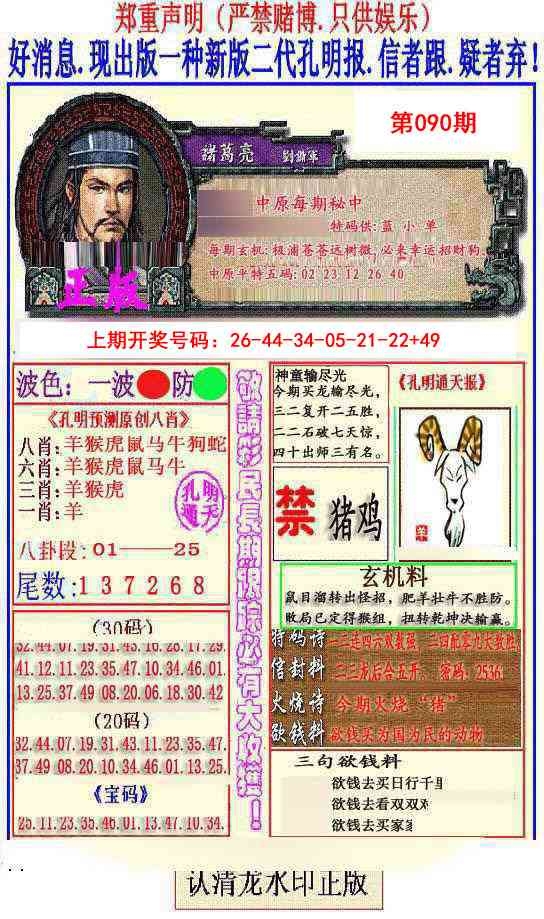 郑重声明（严禁赌博.只供娱乐）
好消息.现出版一种新版二代孔明报.信者跟.疑者弃！
第090期
諸葛亮 劉備軍
中原每期秘中
特码供: 蓝 小 单
每期玄机: 极浦苍苍远树微,必来幸运招财狗.
中原平特五码: 02 23 12 26 40
正版
上期开奖号码: 26-44-34-05-21-22+49
波色: 一波 防
《孔明预测原创八肖》
八肖: 羊猴虎鼠马牛狗蛇
六肖: 羊猴虎鼠马牛
三肖: 羊猴虎
一肖: 羊
孔明通天
八卦段: 01——25
尾数: 1 3 7 2 6 8
(30码)
32.44.07.19.31.43.16.28.17.29.
41.12.11.23.35.47.10.34.46.01.
13.25.37.49.08.20.06.18.30.42
(20码)
32.44.07.19.31.43.11.23.35.47.
37.49.08.20.10.34.46.01.13.25.
《宝码》
25.11.23.35.46.01.13.47.10.34.
敬請彩民長期跟踪必有大收獲！
神童输尽光
今期买龙输尽光,
三二复开二五胜,
二二石破七天惊,
四十出师三有名。
《孔明通天报》
禁 猪鸡
玄机料
鼠目溜转出怪招, 肥羊壮牛不胜防。
败局已定得猴组, 扭转乾坤决输赢。
特码诗 一二连四六双数强 二四配零九大数胜
信封料 二三龙后合五开. 密码: 2536.
火烧诗 今期火烧“猪”
欲钱料 欲钱买为国为民的动物
三句欲钱料
欲钱去买日行千里
欲钱去看双双
欲钱去买家
认清龙水印正版